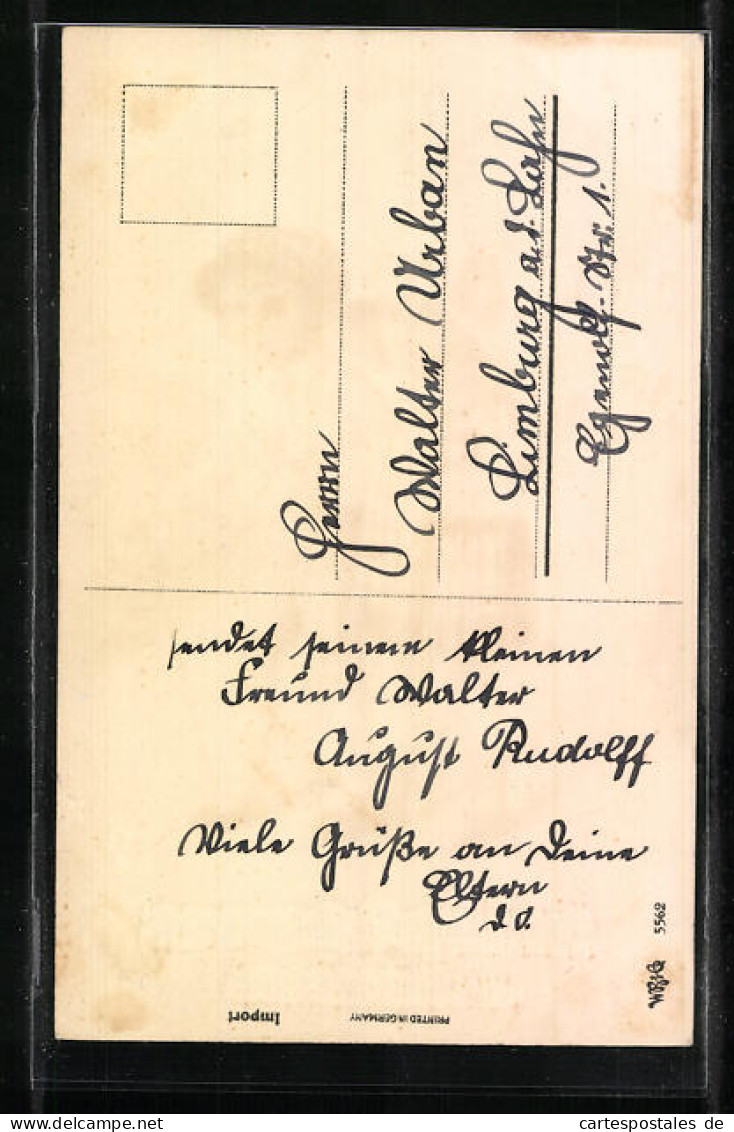 Herrn
Walter Urban
Limburg a.d. Lahn
Egenolf-Str. 1.
sendet seinem kleinen
Freund Walter
August Rudolff
Viele Grüße an Deine
Eltern
5562
Import
PRINTED IN GERMANY
cartespostales de